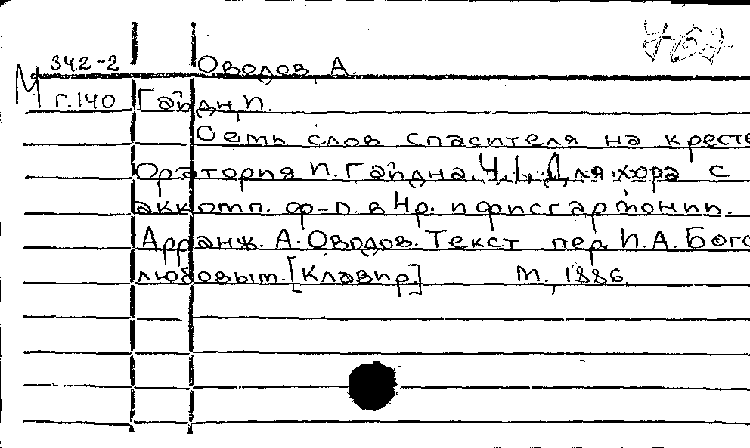 М 342-2 Оводов, А.
Г.140 Гайдн, И.
Семь слов спасителя на кресте
Оратория И. Гайдна. Ч.1. Для хора с
аккомп. ф-п. в 4р. и фисгармонии.
Арранж. А. Оводов. Текст пер. И.А. Бого
любовым. [Клавир.] М., 1886